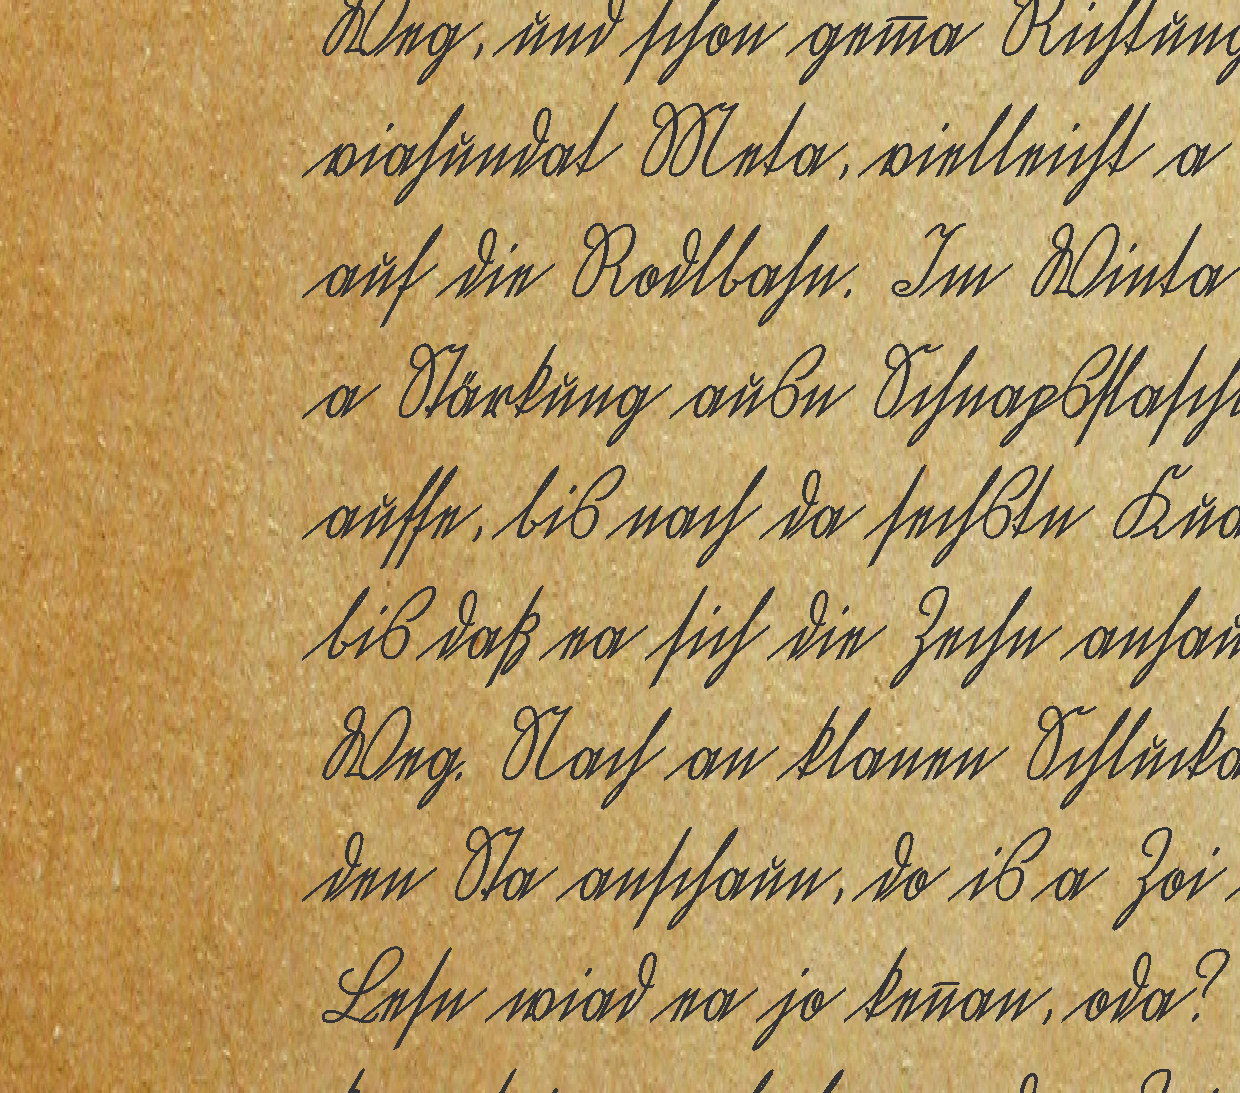 Weg, und schon gem̄a Richtung
viahundat Meta, vielleicht a
auf die Rodlbahn. Im Winta
a Stärkung ausn Schnapsflasch
auffe, bis nach da sechstn Kua
bis daß ea sich die Zechn anhau
Weg. Nach an klanen Schlucka
den Sta anschaun, do is a Zoi
Lesn wiad ea jo ken̄an, oda?